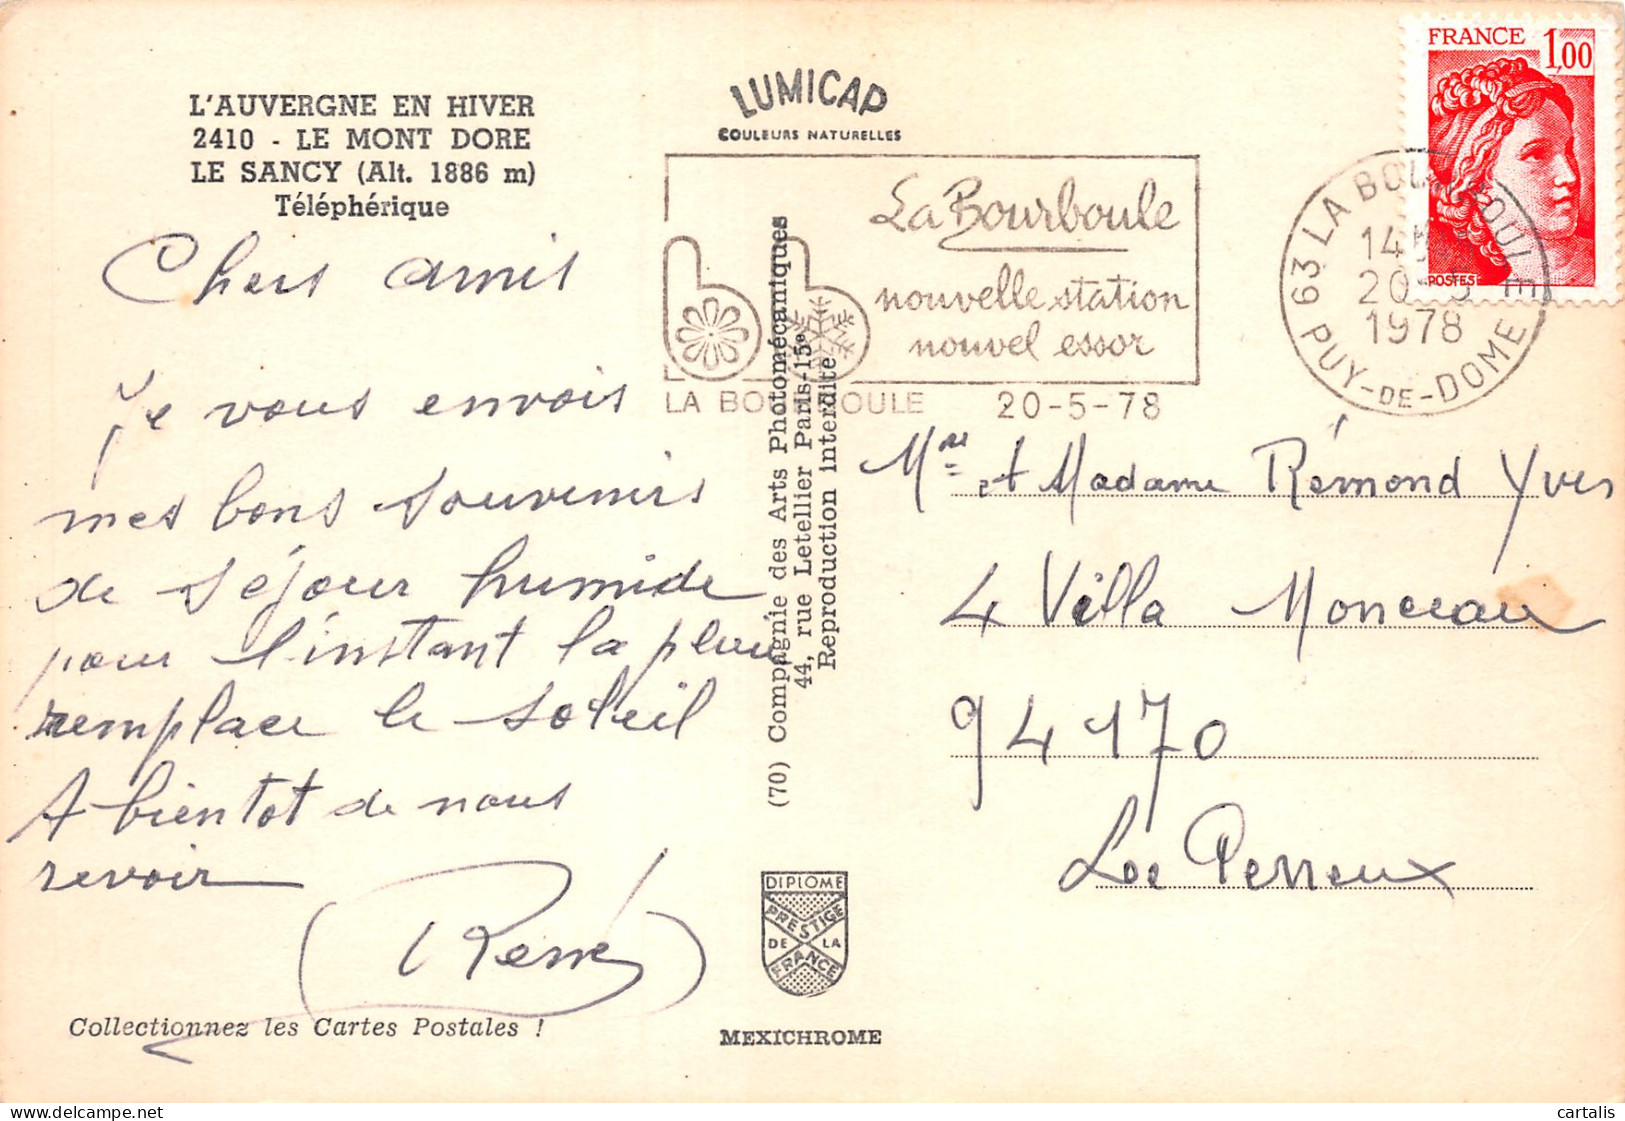 L'AUVERGNE EN HIVER
2410 - LE MONT DORE
LE SANCY (Alt. 1886 m)
Téléphérique
Chers amis
Je vous envois
mes bons souvenirs
de séjour humide
pour l'instant la pluie
remplace le soleil
A bientot de nous
revoir
René
Collectionnez les Cartes Postales !
LUMICAP
COULEURS NATURELLES
La Bourboule
nouvelle station
nouvel essor
LA BOURBOULE 20-5-78
(70) Compagnie des Arts Photomécaniques
44, rue Letellier Paris-15e
Reproduction interdite
DIPLOME
PRESTIGE
DE LA
FRANCE
MEXICHROME
FRANCE 1,00
POSTES
63 LA BOURBOULE
14
20-5
1978
PUY-DE-DOME
Mr et Madame Rémond Yves
4 Villa Monceau
94170
Le Perreux
delcampe.net
cartalis